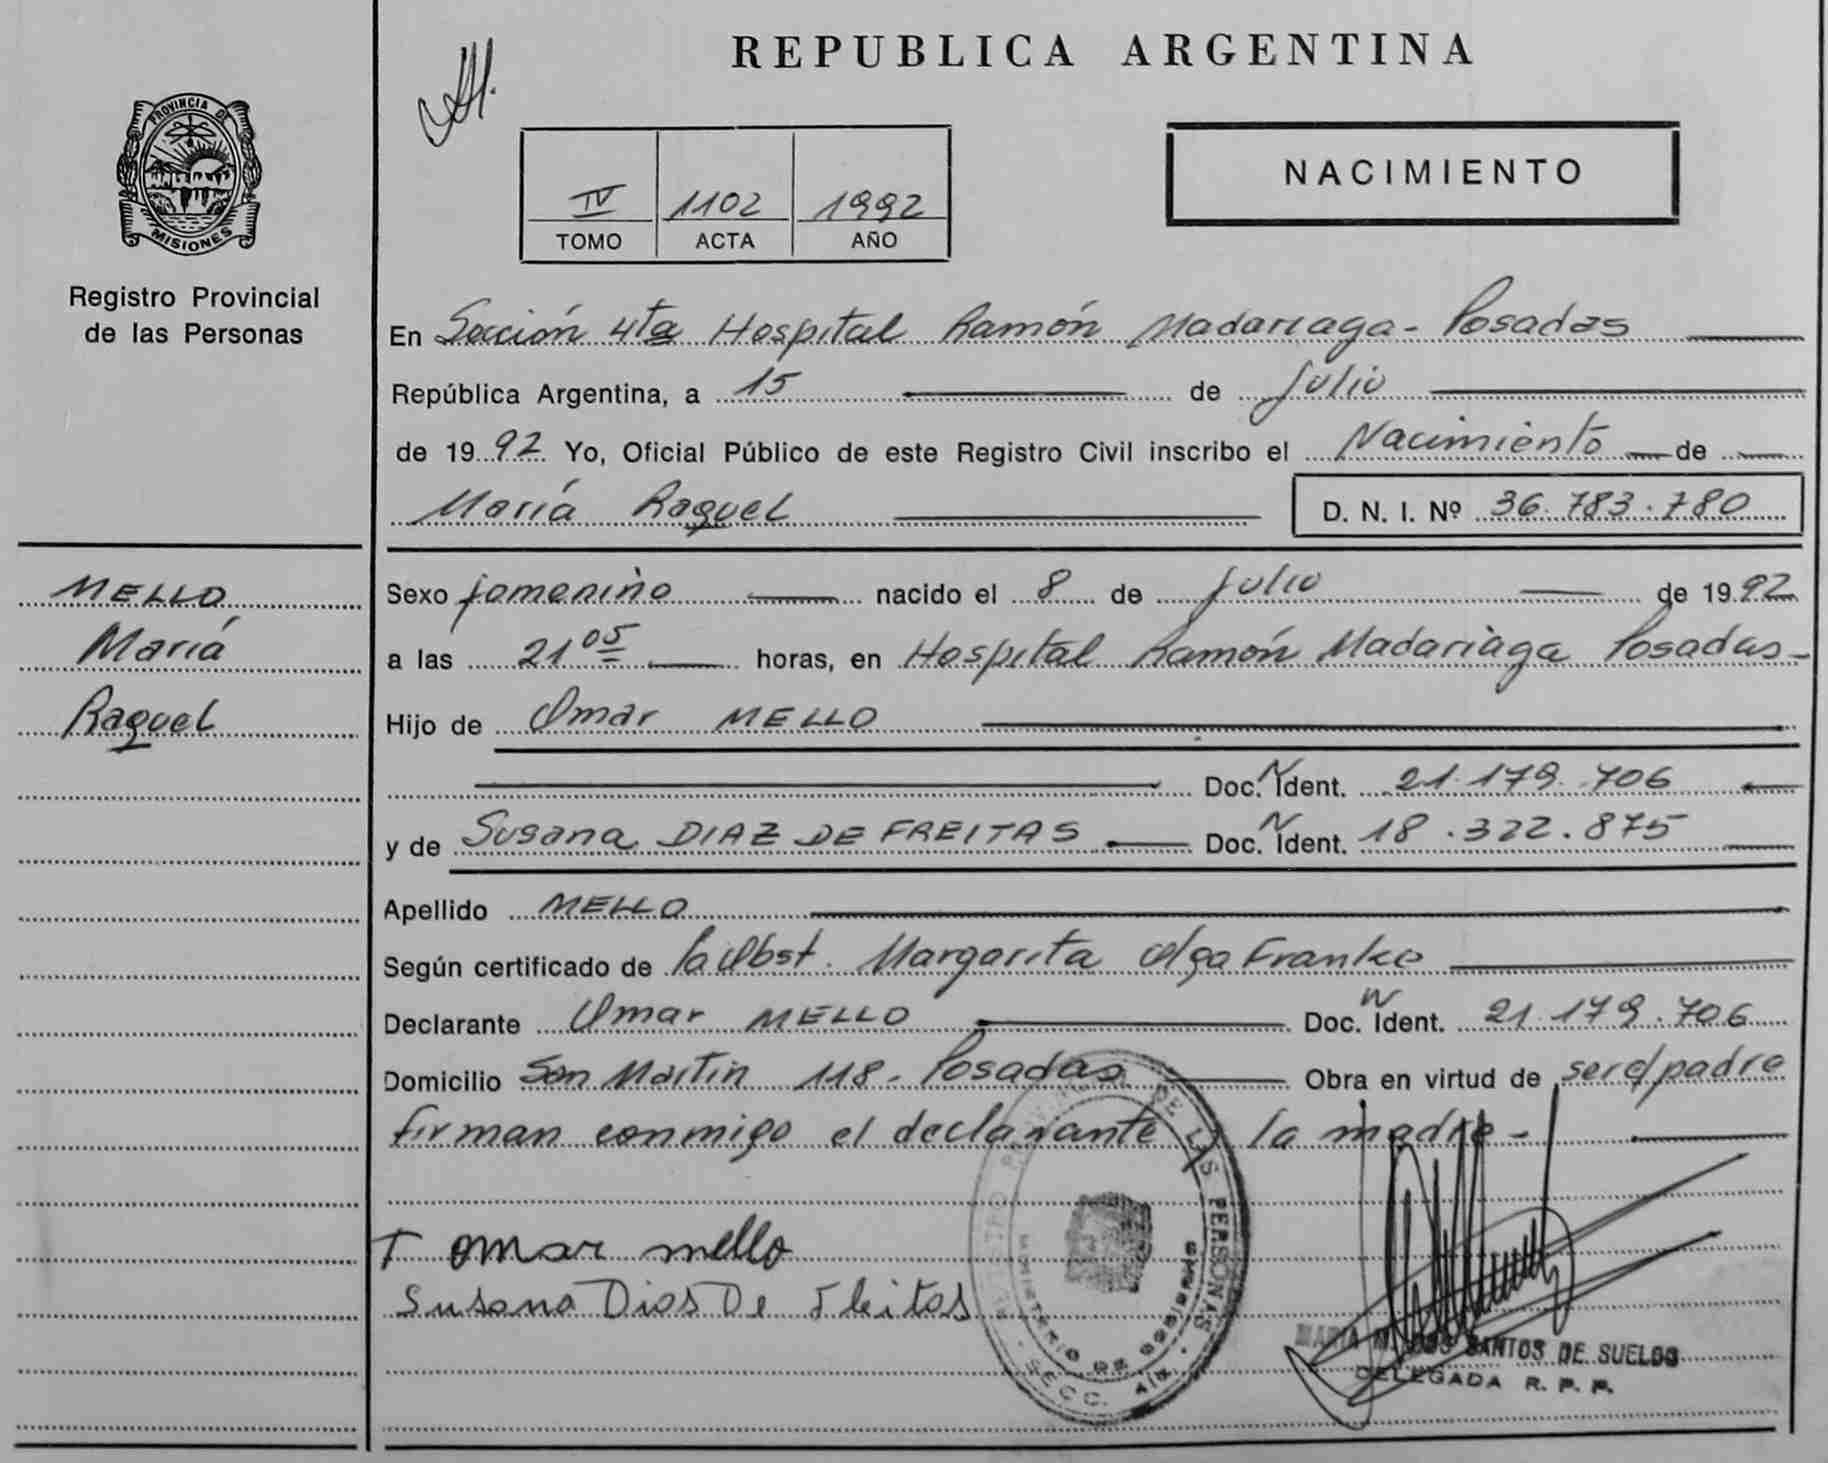 REPUBLICA ARGENTINA
PROVINCIA DE
MISIONES
Registro Provincial
de las Personas
IV 1102 1992
TOMO ACTA AÑO
NACIMIENTO
En Sección 4ta Hospital Ramón Madariaga - Posadas
República Argentina, a 15 de Julio
de 1992 Yo, Oficial Público de este Registro Civil inscribo el Nacimiento de
María Raquel D. N. I. Nº 36.783.780
MELLO
María
Raquel
Sexo femenino nacido el 8 de Julio de 1992
a las 21 05 horas, en Hospital Ramón Madariaga Posadas -
Hijo de Omar MELLO
Doc. N Ident. 21.179.706
y de Susana DIAZ DE FREITAS Doc. N Ident. 18.322.875
Apellido MELLO
Según certificado de la Obst. Margarita Olga Franke
Declarante Omar MELLO Doc. N Ident. 21.179.706
Domicilio San Martin 118 - Posadas Obra en virtud de ser el padre
firman conmigo el declarante y la madre -
omar mello
Susana Dias De fleitas
REGISTRO PROVINCIAL DE LAS PERSONAS
MINISTERIO DE GOBIERNO
SECC. 4ta.
MARIA M. DOS SANTOS DE SUELDO
DELEGADA R. P. P.